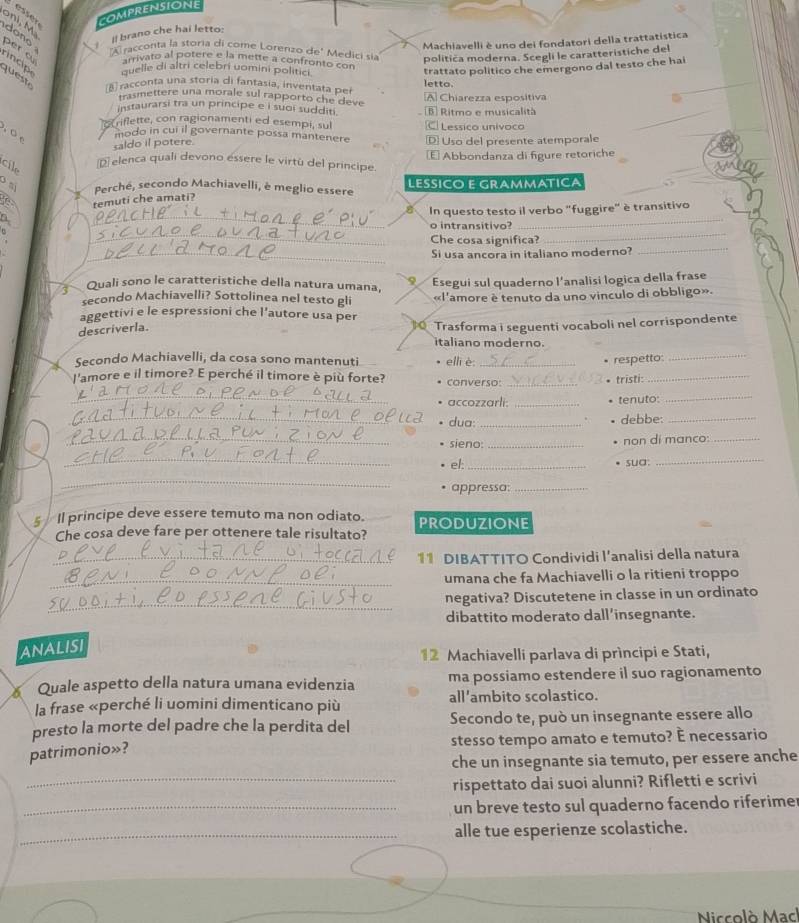 essere
oni, Ma
ndono a
per cui
rincipe
questo
COMPRENSIONE
1 Il brano che hai letto:
A racconta la storia di come Lorenzo de' Medici sia
arrivato al potere e la mette a confronto con
quelle di altri celebri uomini politici.
B racconta una storia di fantasia, inventata per
trasmettere una morale sul rapporto che deve
instaurarsi tra un principe e i suoi sudditi.
C riflette, con ragionamenti ed esempi, sul
modo in cui il governante possa mantenere
saldo il potere.
D elenca quali devono essere le virtù del principe.
2 Perché, secondo Machiavelli, è meglio essere
temuti che amati?
PERCHE' IL TIMORE E' PIU'
SICURO E DURATURO
DELL'AMORE
3 Quali sono le caratteristiche della natura umana,
secondo Machiavelli? Sottolinea nel testo gli
aggettivi e le espressioni che l'autore usa per
descriverla.
Secondo Machiavelli, da cosa sono mantenuti
l'amore e il timore? E perché il timore è più forte?
L'AMORE DIPENDE DALLA
GRATITUDINE IL TIMORE DELLA
PAURA DELLA PUNIZIONE
CHE E' PIU FORTE
5 Il principe deve essere temuto ma non odiato.
Che cosa deve fare per ottenere tale risultato?
DEVE EVITARE DI TOCCARE
BENI E DONNE DEI
SUDDITI, ED ESSERE GIUSTO
ANALISI
6 Quale aspetto della natura umana evidenzia
la frase «perché li uomini dimenticano più
presto la morte del padre che la perdita del
patrimonio»?
7 Machiavelli è uno dei fondatori della trattatistica
politica moderna. Scegli le caratteristiche del
trattato politico che emergono dal testo che hai
letto.
A Chiarezza espositiva
B Ritmo e musicalità
C Lessico univoco
D Uso del presente atemporale
E Abbondanza di figure retoriche
LESSICO E GRAMMATICA
8 In questo testo il verbo "fuggire" è transitivo
o intransitivo?
Che cosa significa?
Si usa ancora in italiano moderno?
9 Esegui sul quaderno l'analisi logica della frase
«l'amore è tenuto da uno vinculo di obbligo».
10 Trasforma i seguenti vocaboli nel corrispondente
italiano moderno.
• elli è: SE E' • respetto:
• converso: VICEVERSA • tristi:
• accozzarli: • tenuto:
• dua: • debbe:
• sieno: • non di manco:
• el: • sua:
• appressa:
PRODUZIONE
11 DIBATTITO Condividi l'analisi della natura
umana che fa Machiavelli o la ritieni troppo
negativa? Discutetene in classe in un ordinato
dibattito moderato dall'insegnante.
12 Machiavelli parlava di prìncipi e Stati,
ma possiamo estendere il suo ragionamento
all'ambito scolastico.
Secondo te, può un insegnante essere allo
stesso tempo amato e temuto? È necessario
che un insegnante sia temuto, per essere anche
rispettato dai suoi alunni? Rifletti e scrivi
un breve testo sul quaderno facendo riferimen
alle tue esperienze scolastiche.
Niccolò Mach